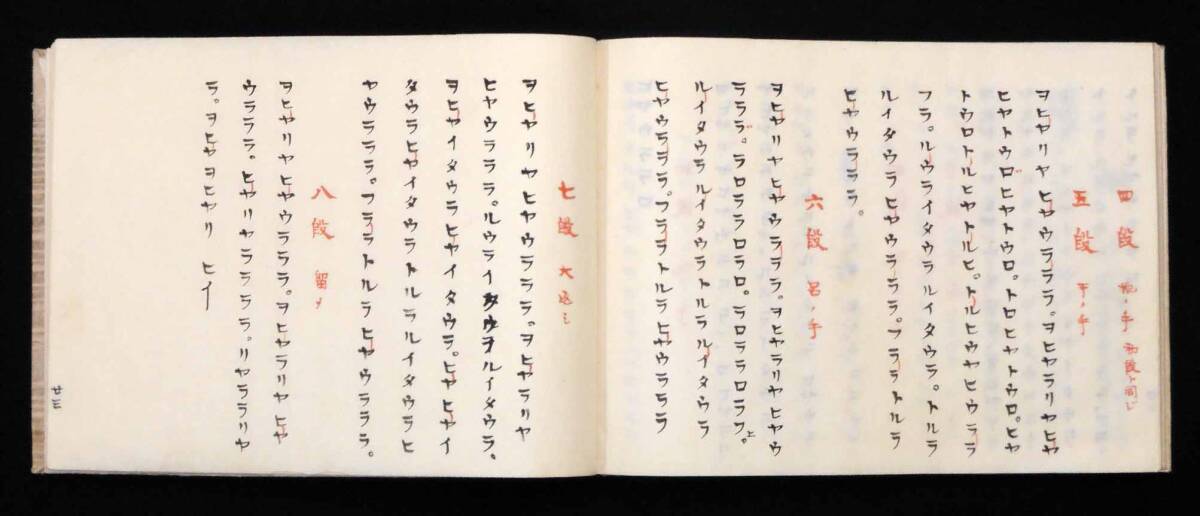 四段 地ノ手 初段ト同じ
五段 干ノ手
ヲヒヤリヤ ヒヤウラララ。ヲヒヤラリヤヒヤ
ヒヤトウロヒヤトウロ。トロヒヤトウロ。ヒヤ
トウロトルヒヤトルヒ。トルヒウヤヒウララ
フラ。ルウライタウラルイタウラ。トルラ
ルイタウラ ヒヤウラララ。フララ トルラ
ヒヤウラララ。
六段 呂ノ手
ヲヒヤリヤヒヤウラララ。ヲヒヤラリヤヒヤウ
ラララ。ラロララロラロ。ラロララロラフ。上
ルイタウラ ルイタウラトルラルイタウラ
ヒヤウラララ。フララトルラ ヒヤウラララ
七段 大返シ
ヲヒヤリヤ ヒヤウラララ。ヲヒヤラリヤ
ヒヤウラララ。ルウライタウヲルイタウラ。
ヲヒヤイタウラヒヤイタウラ。ヒヤヒヤイ
タウラヒヤイタウラトルラルイタウラヒ
ヤウラララ。フララトルラ ヒヤウラララ。
八段 留メ
ヲヒヤリヤヒヤウラララ。ヲヒヤラリヤヒヤ
ウラララ。ヒヤリヤララララ。リヤララリヤ
ラ。ヲヒヤヲヒヤリ ヒイ
廿三